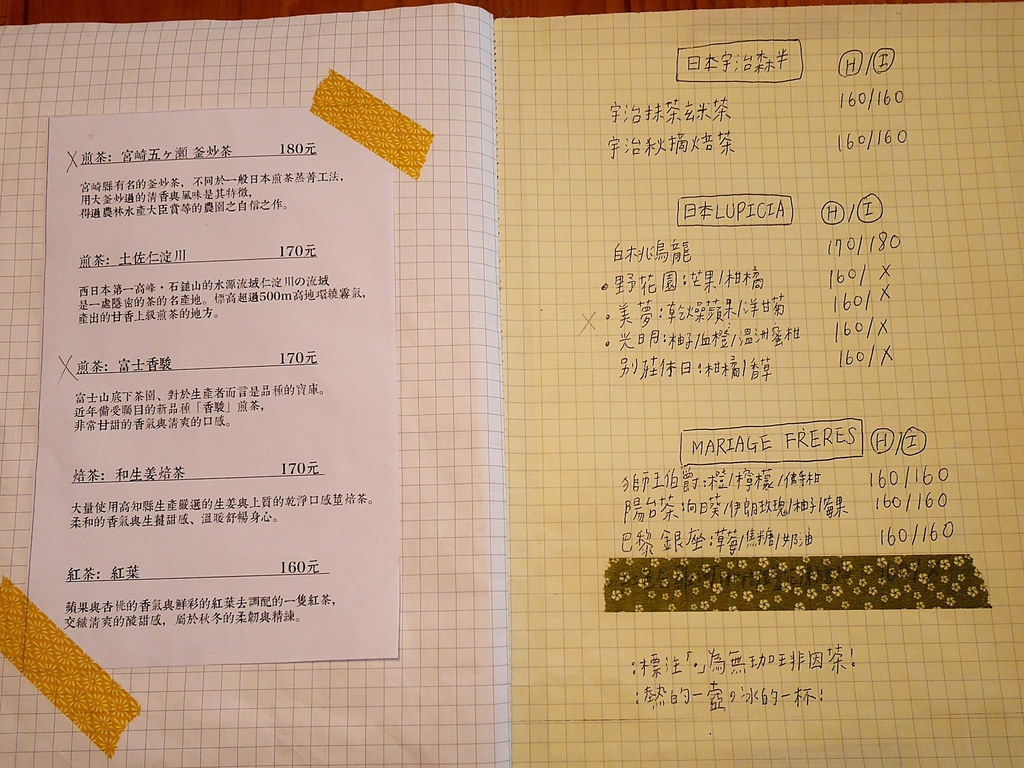 煎茶: 宮崎五ヶ瀬 釜炒茶 180元
宮崎縣有名的釜炒茶，不同於一般日本煎茶蒸菁工法，
用大釜炒過的清香與風味是其特徵，
得過農林水產大臣賞等的農園之自信之作。
煎茶: 土佐仁淀川 170元
西日本第一高峰・石鎚山的水源流域仁淀川の流域
是一處隱密的茶的名產地。標高超過500m高地環繞霧氣，
產出的甘香上級煎茶的地方。
煎茶: 富士香駿 170元
富士山底下茶園、對於生產者而言是品種的寶庫。
近年備受矚目的新品種「香駿」煎茶，
非常甘甜的香氣與清爽的口感。
焙茶: 和生姜焙茶 170元
大量使用高知縣生產嚴選的生姜與上質的乾淨口感莖焙茶。
柔和的香氣與生薑甜感、溫暖舒暢身心。
紅茶: 紅葉 160元
蘋果與杏桃的香氣與鮮彩的紅葉去調配的一隻紅茶，
交織清爽的酸甜感，屬於秋冬的柔韌與精練。
日本宇治森半 H/I
宇治抹茶玄米茶 160/160
宇治秋摘焙茶 160/160
日本LUPICIA H/I
白桃烏龍 170/180
•野花園:芒果/柑橘 160/x
•美夢:乾燥蘋果/洋甘菊 160/x
•光明:柚子/血橙/溫洲蜜柑 160/x
別莊休日:柑橘/香草 160/x
MARIAGE FRÈRES H/I
獅王伯爵:橙/檸檬/佛手柑 160/160
陽台茶:向日葵/伊朗玫瑰/柚子/莓果 160/160
巴黎銀座:草莓/焦糖/奶油 160/160
:標注「•」為無珈琲因茶!
:熱的一壺,冰的一杯!